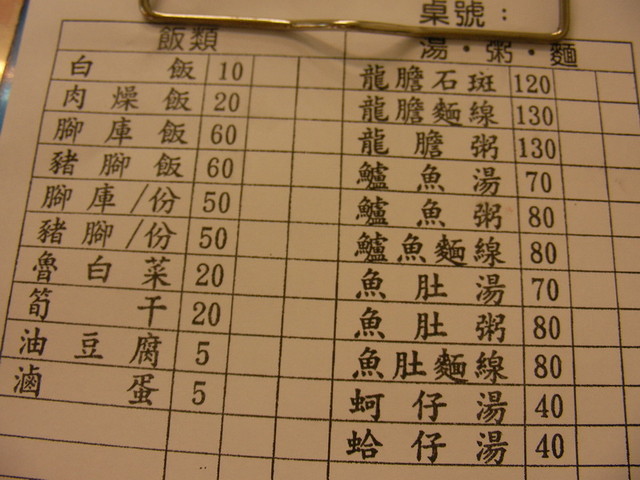 桌號：
飯類
白飯 10
肉燥飯 20
腳庫飯 60
豬腳飯 60
腳庫/份 50
豬腳/份 50
魯白菜 20
筍干 20
油豆腐 5
滷蛋 5
湯·粥·麵
龍膽石斑 120
龍膽麵線 130
龍膽粥 130
鱸魚湯 70
鱸魚粥 80
鱸魚麵線 80
魚肚湯 70
魚肚粥 80
魚肚麵線 80
蚵仔湯 40
蛤仔湯 40